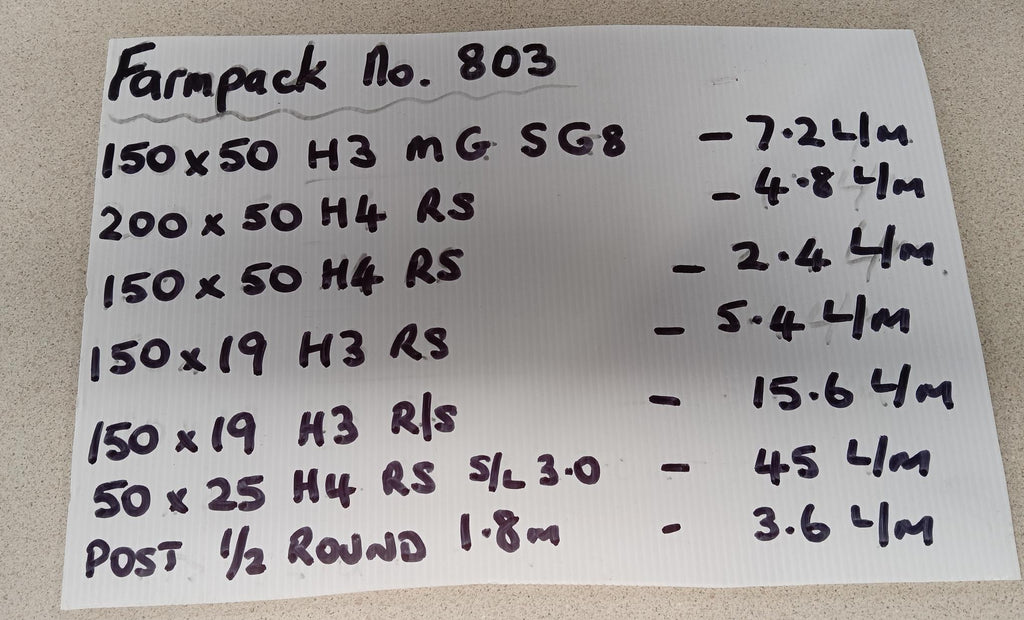 Farmpack No. 803
150 x 50 H3 MG SG8 - 7.2 L/M
200 x 50 H4 RS - 4.8 L/M
150 x 50 H4 RS - 2.4 L/M
150 x 19 H3 RS - 5.4 L/M
150 x 19 H3 R/S - 15.6 L/M
50 x 25 H4 RS S/L 3.0 - 45 L/M
POST 1/2 ROUND 1.8m - 3.6 L/M